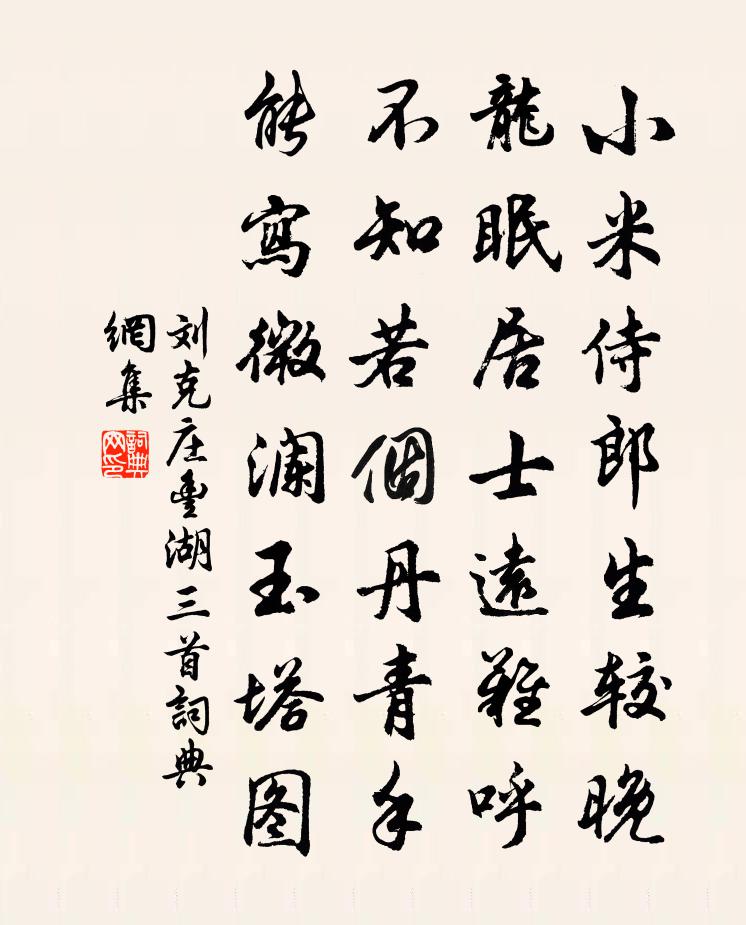 小米侍郎生较晚
龍眠居士遠難呼
不知若個丹青手
能寫微澜玉塔图
刘克庄豊湖三首詞典
網集
詞典網印